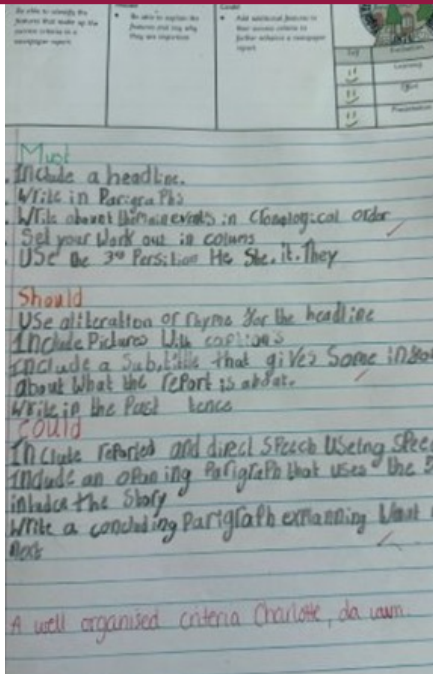 Be able to identify the
features that make up the
success criteria in a
newspaper report.
Be able to explain the
features and say why
they are important
Could
Add additional features to
their success criteria to
further enhance a newspaper
report.
Evaluation
Learning
Effort
Presentation
Must
Include a headline.
Write in Parigraphs
Write about the main events in Cronological order
Set your Work out in colums
Use the 3rd Persition He She. it. They
Should
Use aliteration or rhyme for the headline
Include Pictures With caption's
Include a Subtitle that gives Some
about What the report is about.
Write in the Past tence
Could
Include reported and direct Speech Useing
Include an opaning Parigraph that uses the 5
the Story
Write a concluding Parigraph What
Next
A well organised criteria Charlotte, da iawn.